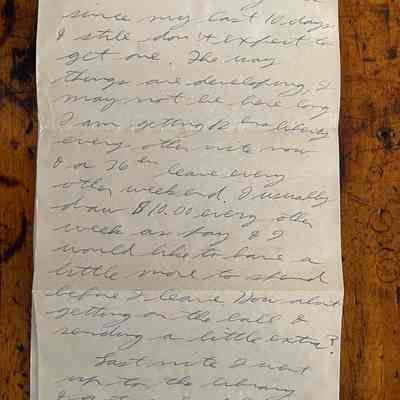 since my last 10 days
& still don't expect to
get one. The way
things are developing, I
may not be here long
I am getting 12 hrs liberty
every other nite now
& a 36 hr leave every
other weekend. I usually
draw $10.00 every other
week as pay & I
would like to have a
little more to spend
before I leave. How about
getting on the ball &
sending a little extra?
Last nite I went
up to the library